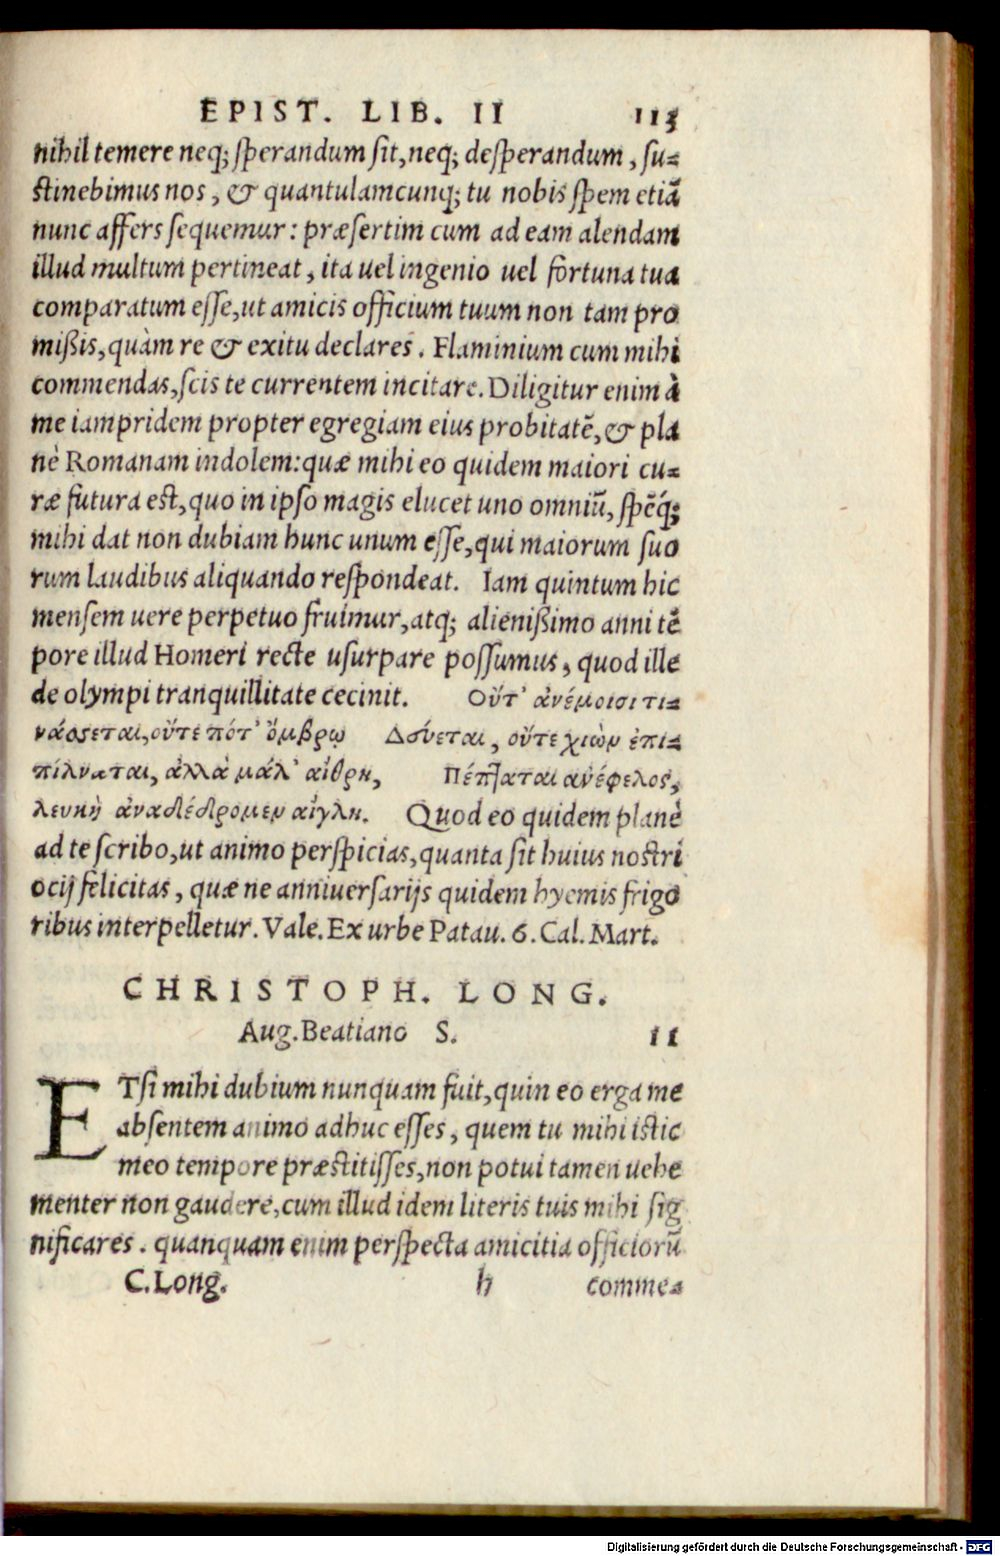 EPIST. LIB. II 113
nihil temere neq; sperandum sit, neq; desperandum, su-
stinebimus nos, & quantulamcunq; tu nobis spem etiã
nunc affers sequemur: præsertim cum ad eam alendam
illud multum pertineat, ita uel ingenio uel fortuna tua
comparatum esse, ut amicis officium tuum non tam pro
mißis, quàm re & exitu declares. Flaminium cum mihi
commendas, scis te currentem incitare. Diligitur enim à
me iampridem propter egregiam eius probitatẽ, & pla
nè Romanam indolem: quæ mihi eo quidem maiori cu-
ræ futura est, quo in ipso magis elucet uno omniũ, spẽq́;
mihi dat non dubiam hunc unum esse, qui maiorum suo
rum laudibus aliquando respondeat. Iam quintum hic
mensem uere perpetuo fruimur, atq; alienißimo anni tẽ
pore illud Homeri recte usurpare possumus, quod ille
de olympi tranquillitate cecinit. Οὔτ' ἀνέμοισι τι-
νάσσεται, οὔτε πότ' ὄμβρῳ Δεύεται, οὔτε χιὼν ἐπι-
πίλναται, ἀλλὰ μάλ' αἴθρη, Πέπταται ἀνέφελος,
λευκὴ ἀναδέδρομεν αἴγλη. Quod eo quidem planè
ad te scribo, ut animo perspicias, quanta sit huius nostri
ocij felicitas, quæ ne anniuersarijs quidem hyemis frigo
ribus interpelletur. Vale. Ex urbe Patau. 6. Cal. Mart.
CHRISTOPH. LONG.
Aug. Beatiano S. II
ETsi mihi dubium nunquam fuit, quin eo erga me
absentem animo adhuc esses, quem tu mihi istic
meo tempore præstitisses, non potui tamen uehe
menter non gaudere, cum illud idem literis tuis mihi sig
nificares. quanquam enim perspecta amicitia officiorũ
C. Long. h comme-
Digitalisierung gefördert durch die Deutsche Forschungsgemeinschaft - DFG